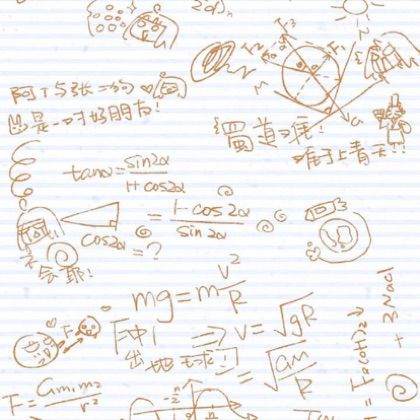 阿丁与张二狗
也是一对好朋友!
蜀道难!
难于上青天!!!
tanα = sin2α / 1+cos2α
= 1-cos2α / sin2α
cos2α = ?
不会耶!
mg = m v² / R
⇒ v = √gR
冲出地球!
√GM / R
F
F = Gm₁m₂ / r²
+ 3NaCl